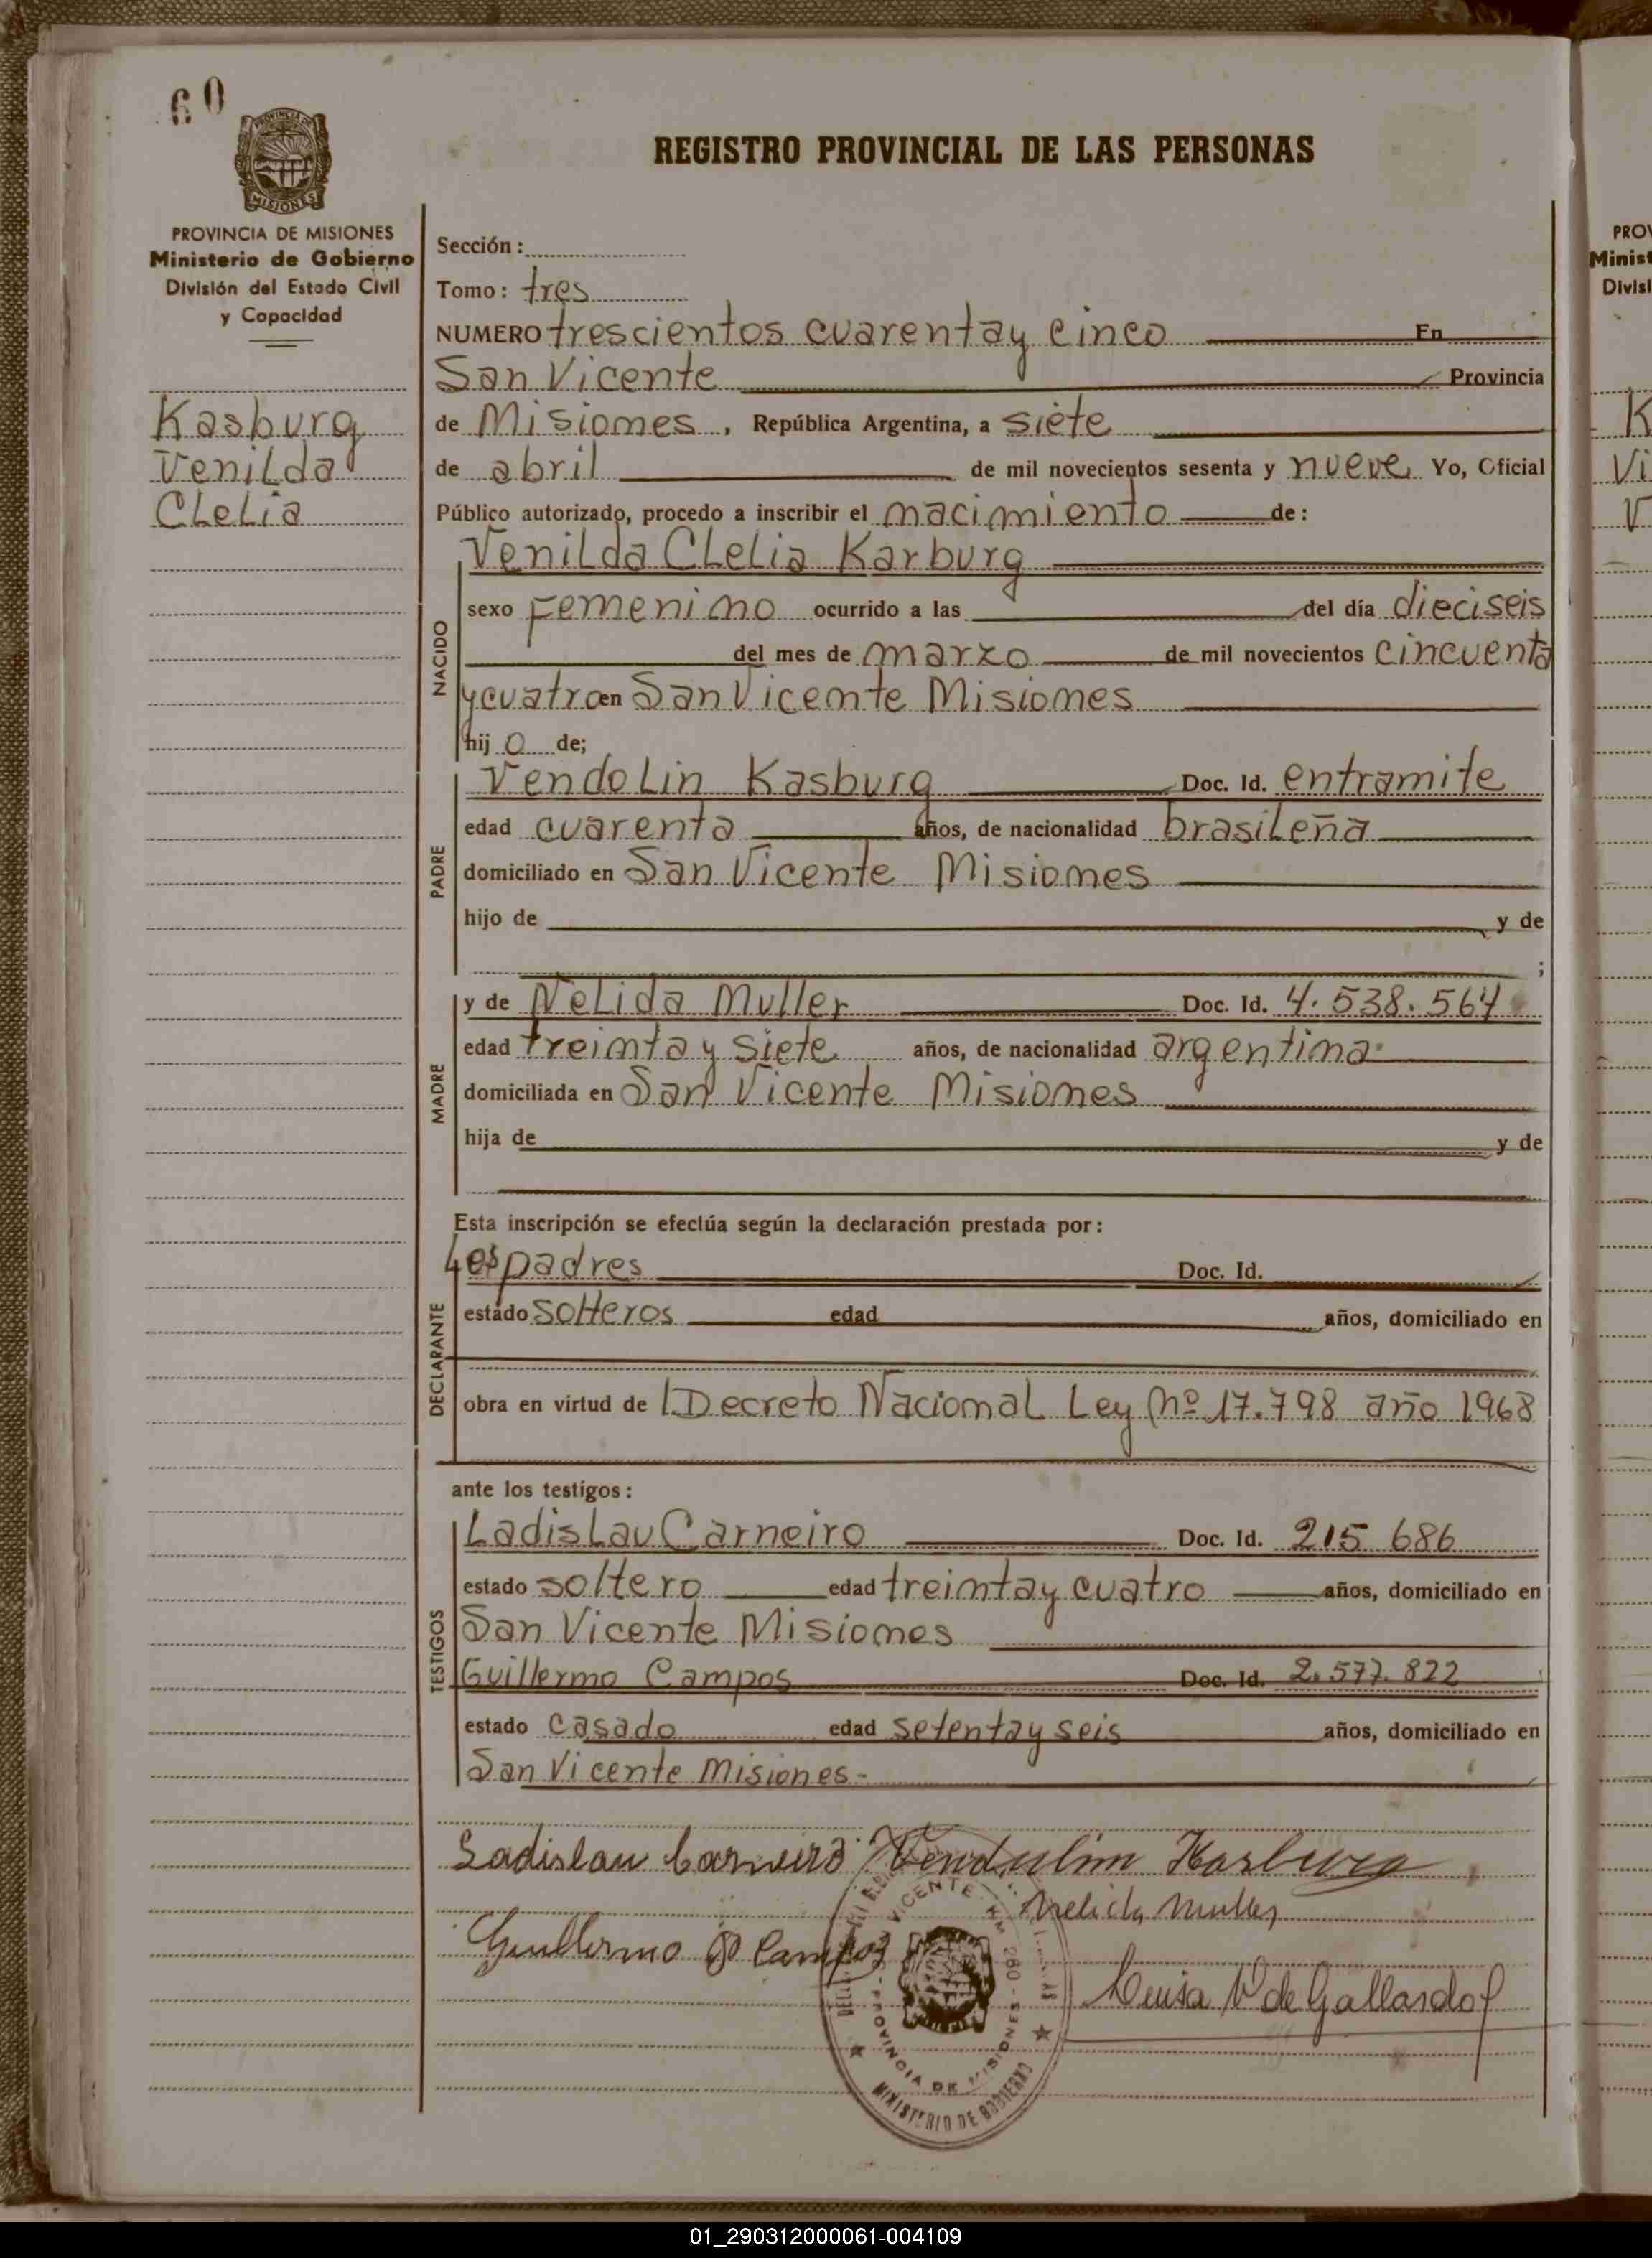 60
PROVINCIA DE MISIONES
Ministerio de Gobierno
División del Estado Civil
y Capacidad
Kasburg
Venilda
Clelia
REGISTRO PROVINCIAL DE LAS PERSONAS
Sección:
Tomo: tres
NUMERO trescientos cuarenta y cinco En
San Vicente Provincia
de Misiones, República Argentina, a siete
de abril de mil novecientos sesenta y nueve Yo, Oficial
Público autorizado, procedo a inscribir el nacimiento de:
Venilda Clelia Karburg
NACIDO
sexo Femenino ocurrido a las del día dieciseis
del mes de marzo de mil novecientos cincuenta
y cuatro en San Vicente Misiones
hijo de;
PADRE
Vendolin Kasburg Doc. Id. entramite
edad cuarenta años, de nacionalidad brasileña
domiciliado en San Vicente Misiones
hijo de y de
;
MADRE
y de Nelida Muller Doc. Id. 4.538.564
edad treinta y siete años, de nacionalidad argentina
domiciliada en San Vicente Misiones
hija de y de
Esta inscripción se efectúa según la declaración prestada por:
DECLARANTE
Los padres Doc. Id.
estado solteros edad años, domiciliado en
obra en virtud de l Decreto Nacional Ley nº 17.798 año 1968
ante los testigos:
TESTIGOS
Ladislau Carneiro Doc. Id. 215 686
estado soltero edad treinta y cuatro años, domiciliado en
San Vicente Misiones
Guillermo Campos Doc. Id. 2.577.822
estado casado edad setenta y seis años, domiciliado en
San Vicente Misiones-
Ladislau Carneiro Vendulim Kasburg
Nelida Muller
Guillermo Campos
Luisa V de Gallardo
VICENTE - KM 280 -
PROVINCIA DE MISIONES
MINISTERIO DE GOBIERNO
PROV
Minist
Divisi
K
Vi
V
01_290312000061-004109